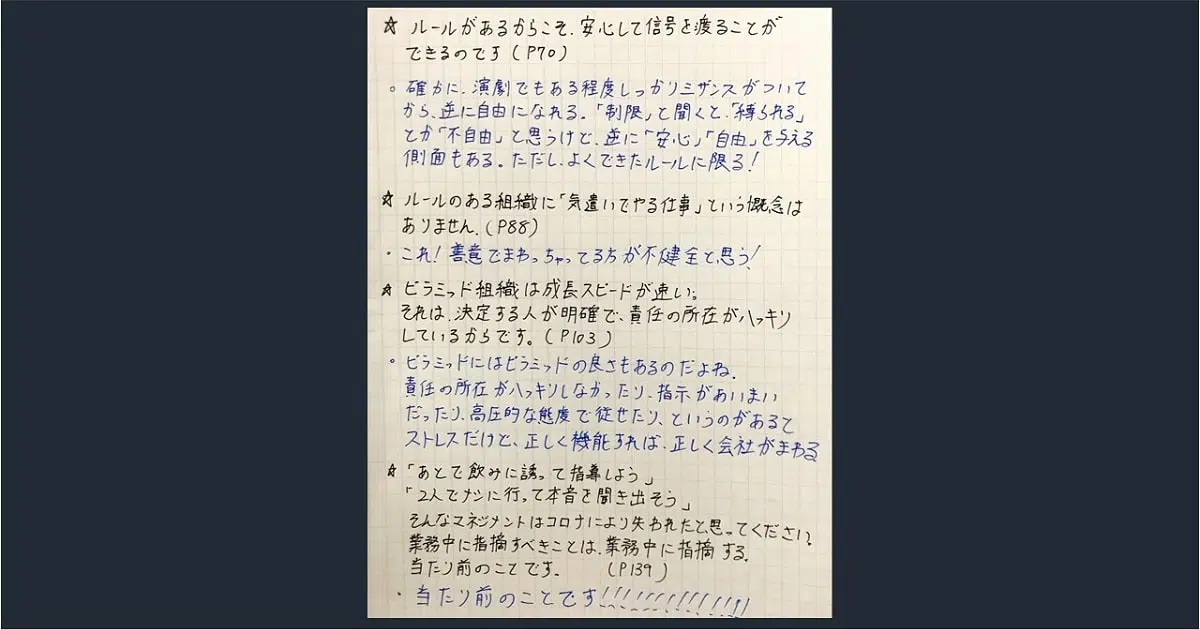 ☆ ルールがあるからこそ、安心して信号を渡ることが
できるのです(P70)
○ 確かに、演劇でもある程度しっかりミザンスがついて
から、逆に自由になれる。「制限」と聞くと、「縛られる」
とか「不自由」と思うけど、逆に「安心」「自由」を与える
側面もある。ただし、よくできたルールに限る!
☆ ルールのある組織に「気遣いでやる仕事」という概念は
ありません。(P88)
・これ!善意でまわっちゃってる方が不健全と思う!
☆ ピラミッド組織は成長スピードが速い。
それは、決定する人が明確で、責任の所在がハッキリ
しているからです。(P103)
○ ピラミッドにはピラミッドの良さもあるのだよね。
責任の所在がハッキリしなかったり、指示があいまい
だったり、高圧的な態度で従せたり、というのがあると
ストレスだけど、正しく機能すれば、正しく会社がまわる
☆「あとで飲みに誘って指導しよう」
「2人でメシに行って本音を聞き出そう」
そんなマネジメントはコロナにより失われたと思ってください。
業務中に指摘すべきことは、業務中に指摘する。
当たり前のことです。 (P139)
・当たり前のことです!!!!!!!!!!!!!